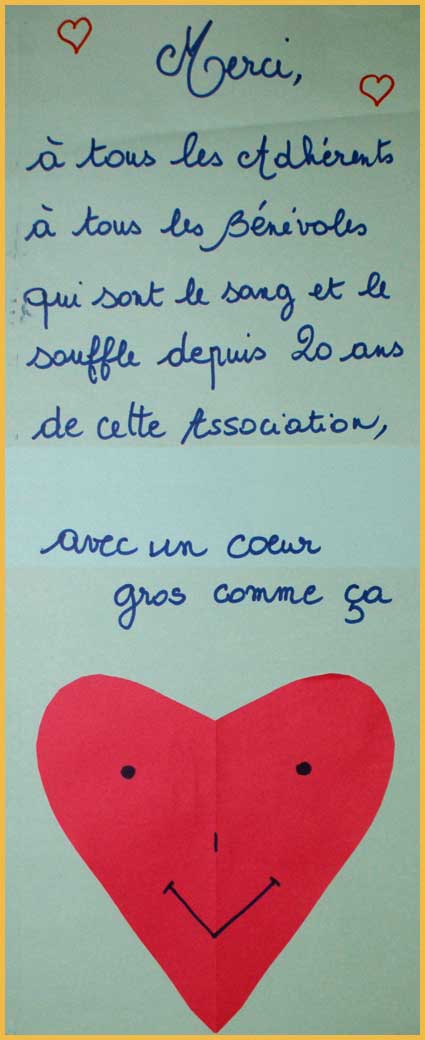 Merci,
à tous les Adhérents
à tous les Bénévoles
qui sont le sang et le
souffle depuis 20 ans
de cette Association,
avec un coeur
gros comme ça